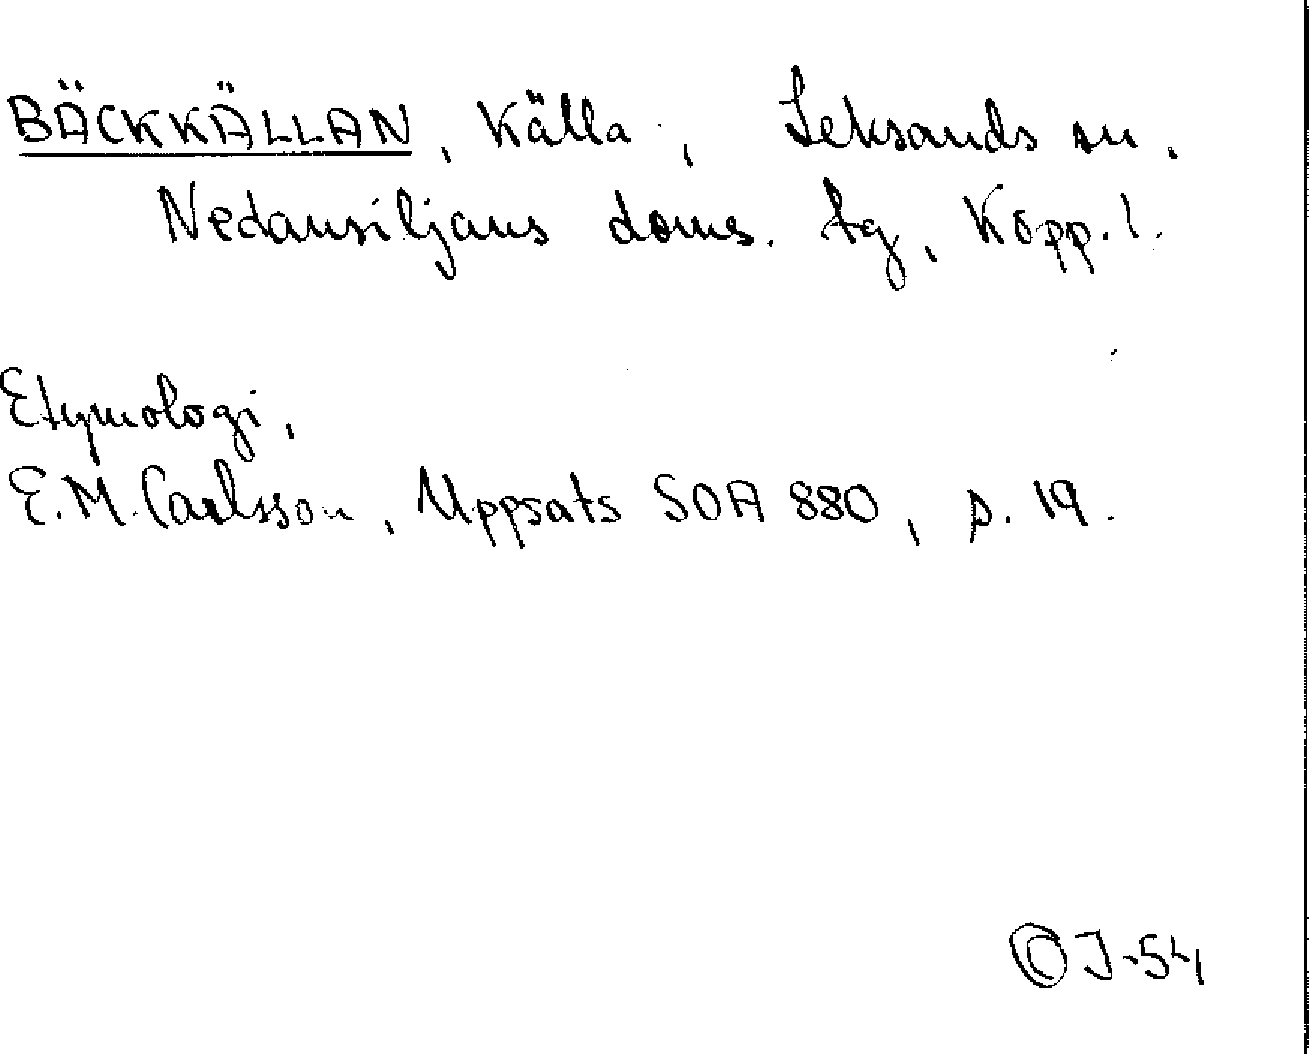 BÄCKKÄLLAN, källa, Leksands sn.
Nedansiljans doms. tg, Kopp. l.
Etymologi,
E.M. Carlsson, Uppsats SOA 880, s. 19.
© J-54